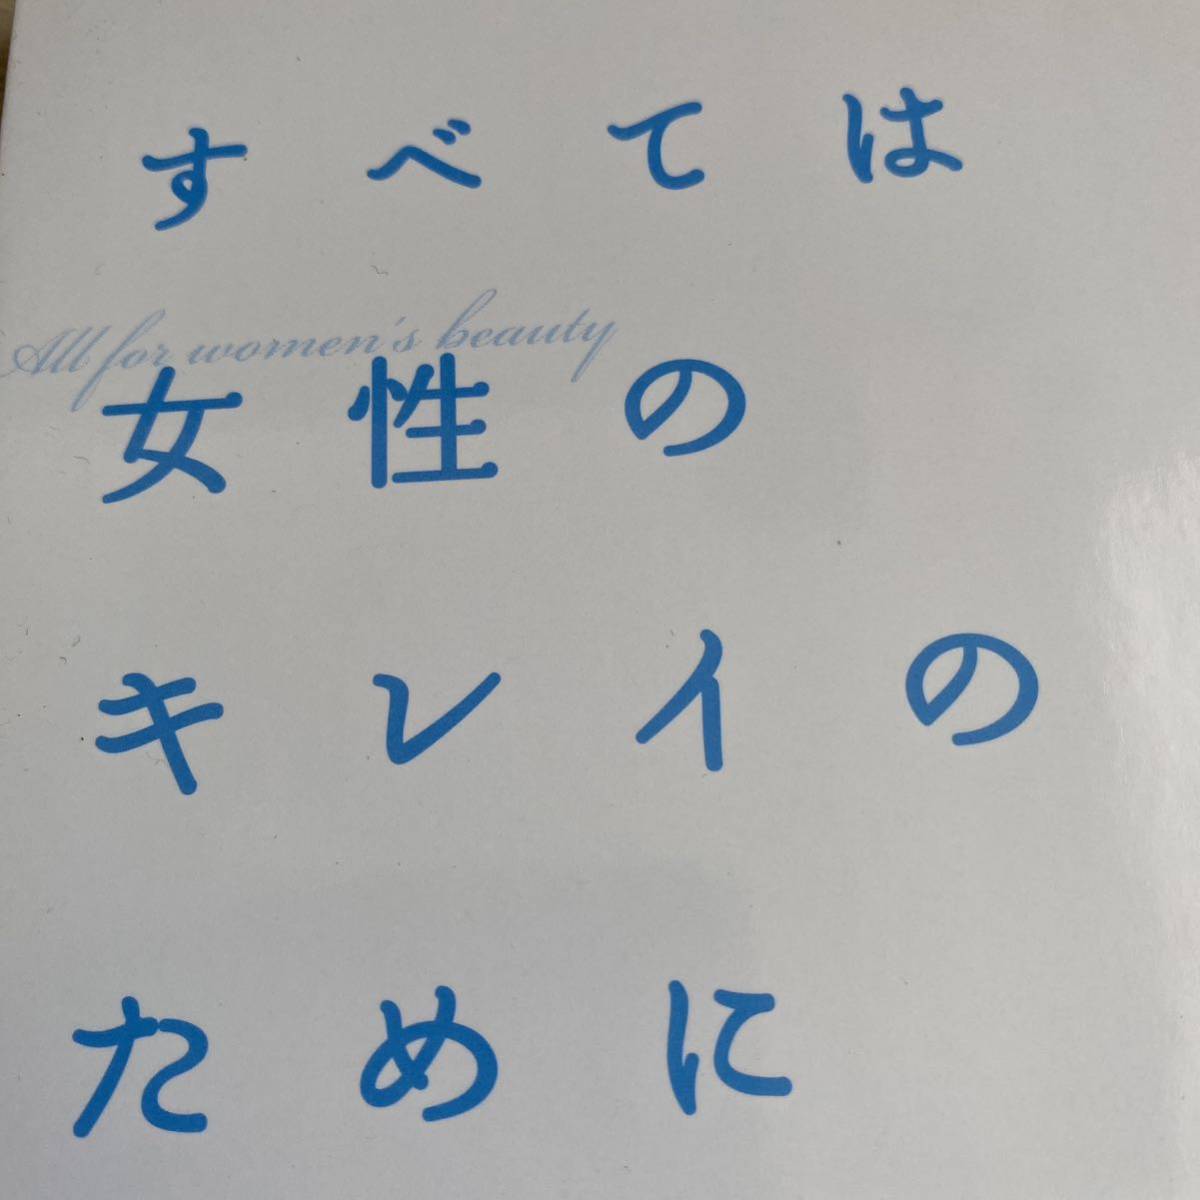 すべては
All for women's beauty
女性の
キレイの
ために